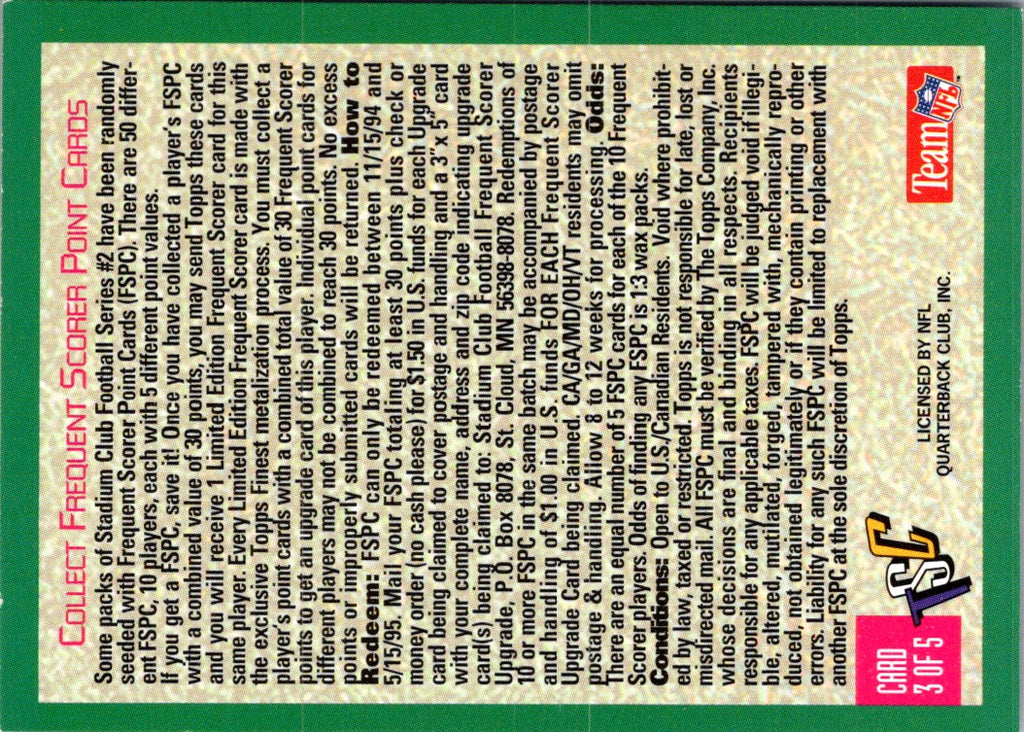 COLLECT FREQUENT SCORER POINT CARDS
Some packs of Stadium Club Football Series #2 have been randomly
seeded with Frequent Scorer Point Cards (FSPC). There are 50 differ-
ent FSPC, 10 players, each with 5 different point values.
If you get a FSPC, save it! Once you have collected a player's FSPC
with a combined value of 30 points, you may send Topps these cards
and you will receive 1 Limited Edition Frequent Scorer card for this
same player. Every Limited Edition Frequent Scorer card is made with
the exclusive Topps Finest metalization process. You must collect a
player's point cards with a combined total value of 30 Frequent Scorer
points to get an upgrade card of this player. Individual point cards for
different players may not be combined to reach 30 points. No excess
points or improperly submitted cards will be returned. How to
Redeem: FSPC can only be redeemed between 11/15/94 and
5/15/95. Mail your FSPC totaling at least 30 points plus check or
money order (no cash please) for $1.50 in U.S. funds for each Upgrade
card being claimed to cover postage and handling and a 3" x 5" card
with your complete name, address and zip code indicating upgrade
card(s) being claimed to: Stadium Club Football Frequent Scorer
Upgrade, P.O. Box 8078, St. Cloud, MN 56398-8078. Redemptions of
10 or more FSPC in the same batch may be accompanied by postage
and handling of $1.00 in U.S. funds FOR EACH Frequent Scorer
Upgrade Card being claimed. CA/GA/MD/OH/VT residents may omit
postage & handling. Allow 8 to 12 weeks for processing. Odds:
There are an equal number of 5 FSPC cards for each of the 10 Frequent
Scorer players. Odds of finding any FSPC is 1:3 wax packs.
Conditions: Open to U.S./Canadian Residents. Void were prohibit-
ed by law, taxed or restricted. Topps is not responsible for late, lost or
misdirected mail. All FSPC must be verified by The Topps Company, Inc.
whose decisions are final and binding in all respects. Recipients
responsible for any applicable taxes. FSPC will be judged void if illegi-
ble, altered, mutilated, forged, tampered with, mechanically repro-
duced, not obtained legitimately or if they contain printing or other
errors. Liability for any such FSPC will be limited to replacement with
another FSPC at the sole discretion of Topps.
CARD
3 OF 5
TSC
LICENSED BY NFL
QUARTERBACK CLUB, INC.
Team NFL